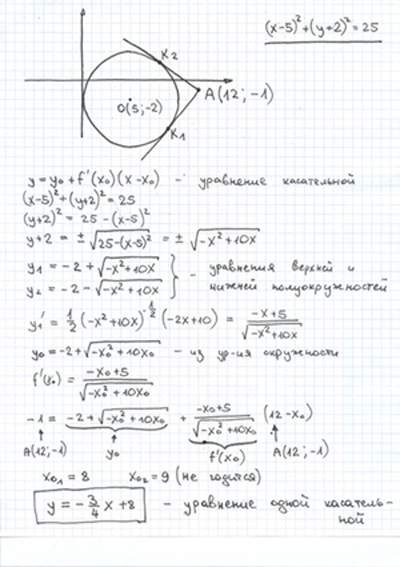 (x-5)² + (y+2)² = 25
K₂
A(12; -1)
O(5; -2)
K₁
y = y₀ + f'(x₀)(x - x₀) - уравнение касательной
(x-5)² + (y+2)² = 25
(y+2)² = 25 - (x-5)²
y+2 = ± √(25-(x-5)²) = ± √(-x²+10x)
y₁ = -2 + √(-x²+10x)
y₂ = -2 - √(-x²+10x)
} - уравнения верхней и
нижней полуокружностей
y₁' = 1/2 (-x²+10x)^(-1/2) (-2x+10) = (-x+5)/√(-x²+10x)
y₀ = -2 + √(-x₀²+10x₀) - из ур-ия окружности
f'(x₀) = (-x₀+5)/√(-x₀²+10x₀)
-1 = -2 + √(-x₀²+10x₀) + (-x₀+5)/√(-x₀²+10x₀) (12-x₀)
A(12; -1) y₀ f'(x₀) A(12; -1)
x₀₁ = 8 x₀₂ = 9 (не годится)
y = -3/4 x + 8 - уравнение одной касатель-
ной